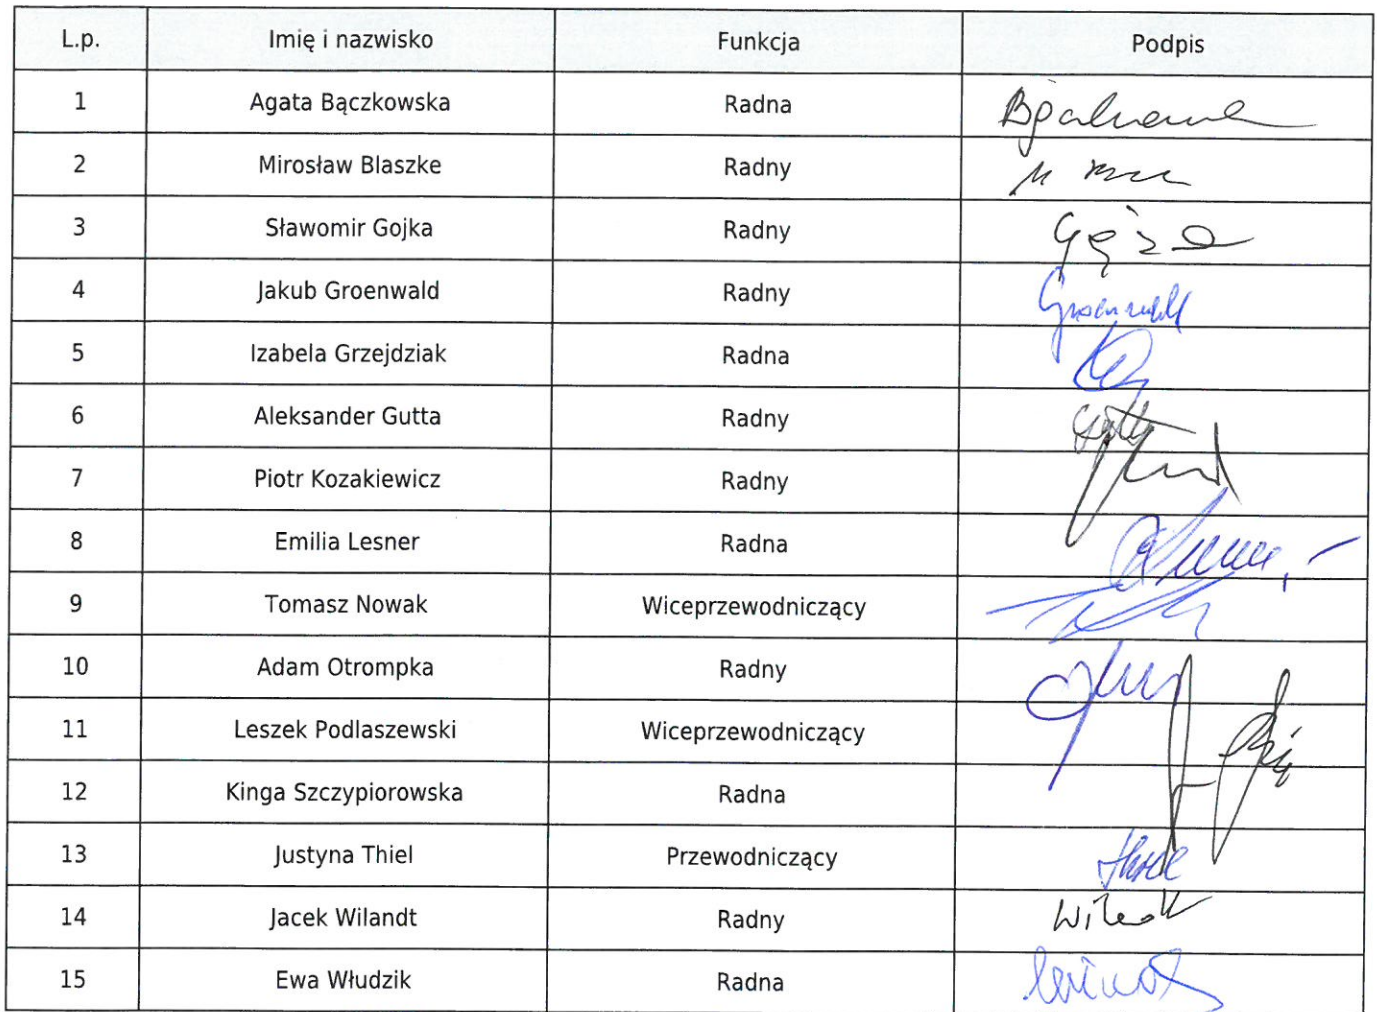 L.p. Imię i nazwisko Funkcja Podpis
1 Agata Bączkowska Radna
2 Mirosław Blaszke Radny
3 Sławomir Gojka Radny
4 Jakub Groenwald Radny
5 Izabela Grzejdziak Radna
6 Aleksander Gutta Radny
7 Piotr Kozakiewicz Radny
8 Emilia Lesner Radna
9 Tomasz Nowak Wiceprzewodniczący
10 Adam Otrompka Radny
11 Leszek Podlaszewski Wiceprzewodniczący
12 Kinga Szczypiorowska Radna
13 Justyna Thiel Przewodniczący
14 Jacek Wilandt Radny
15 Ewa Włudzik Radna